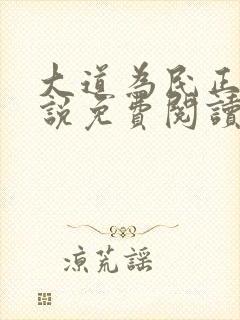 大道為民正
說免費閱讀
涼荒謠